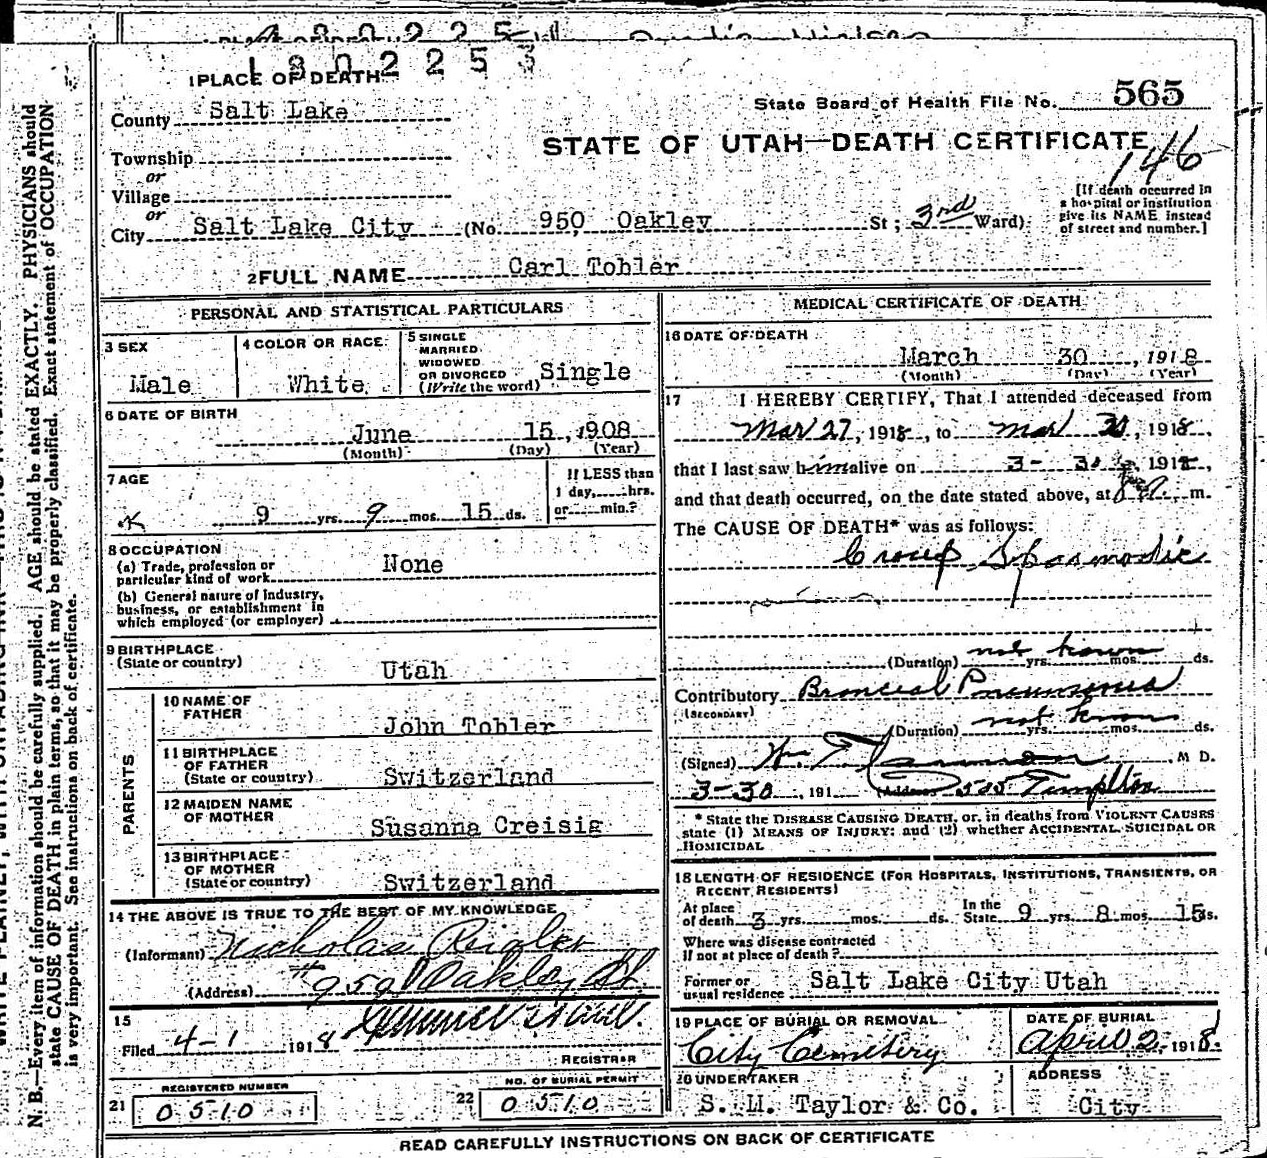 1802253
1 PLACE OF DEATH
County Salt Lake
State Board of Health File No. 565
STATE OF UTAH—DEATH CERTIFICATE
146
Township
or
Village
or
City Salt Lake City (No. 950 Oakley St; 3rd Ward)
[If death occurred in
a hospital or institution
give its NAME instead
of street and number.]
2 FULL NAME Carl Tobler
PERSONAL AND STATISTICAL PARTICULARS
3 SEX
Male
4 COLOR OR RACE
White
5 SINGLE
MARRIED
WIDOWED
OR DIVORCED
(Write the word) Single
6 DATE OF BIRTH
June 15, 1908
(Month) (Day) (Year)
7 AGE
9 yrs. 9 mos. 15 ds.
If LESS than
1 day, hrs.
or min.?
8 OCCUPATION
(a) Trade, profession or
particular kind of work None
(b) General nature of industry,
business, or establishment in
which employed (or employer)
9 BIRTHPLACE
(State or country)
Utah
PARENTS
10 NAME OF
FATHER
John Tobler
11 BIRTHPLACE
OF FATHER
(State or country) Switzerland
12 MAIDEN NAME
OF MOTHER
Susanna Creisig
13 BIRTHPLACE
OF MOTHER
(State or country) Switzerland
14 THE ABOVE IS TRUE TO THE BEST OF MY KNOWLEDGE
(Informant) Nicholas
(Address) #950 Oakley St.
15
Filed 4-1 1918
REGISTRAR
REGISTERED NUMBER
21 0510
NO. OF BURIAL PERMIT
22 0510
MEDICAL CERTIFICATE OF DEATH
16 DATE OF DEATH
March 30, 1918
(Month) (Day) (Year)
17 I HEREBY CERTIFY, That I attended deceased from
Mar 27, 1918, to Mar 30, 1918,
that I last saw him alive on 3-30, 1918,
and that death occurred, on the date stated above, at m.
The CAUSE OF DEATH* was as follows:
Croup Spasmodic
(Duration) not known yrs. mos. ds.
Contributory Broncial Pneumonia
(SECONDARY)
(Duration) not known yrs. mos. ds.
(Signed) M D.
3-30, 191 (Address) 505 Templton
* State the DISEASE CAUSING DEATH, or, in deaths from VIOLENT CAUSES
state (1) MEANS OF INJURY; and (2) whether ACCIDENTAL, SUICIDAL OR
HOMICIDAL
18 LENGTH OF RESIDENCE (FOR HOSPITALS, INSTITUTIONS, TRANSIENTS, OR
RECENT RESIDENTS)
At place
of death 3 yrs. mos. ds.
In the
State 9 yrs 8 mos 15 ds.
Where was disease contracted
if not at place of death?
Former or
usual residence Salt Lake City Utah
19 PLACE OF BURIAL OR REMOVAL
City Cemetery
DATE OF BURIAL
April 2, 1918.
20 UNDERTAKER
S. M. Taylor & Co.
ADDRESS
City
READ CAREFULLY INSTRUCTIONS ON BACK OF CERTIFICATE
N. B.—Every item of information should be carefully supplied. AGE should be stated EXACTLY. PHYSICIANS should
state CAUSE OF DEATH in plain terms, so that it may be properly classified. Exact statement of OCCUPATION
is very important. See instructions on back of certificate.